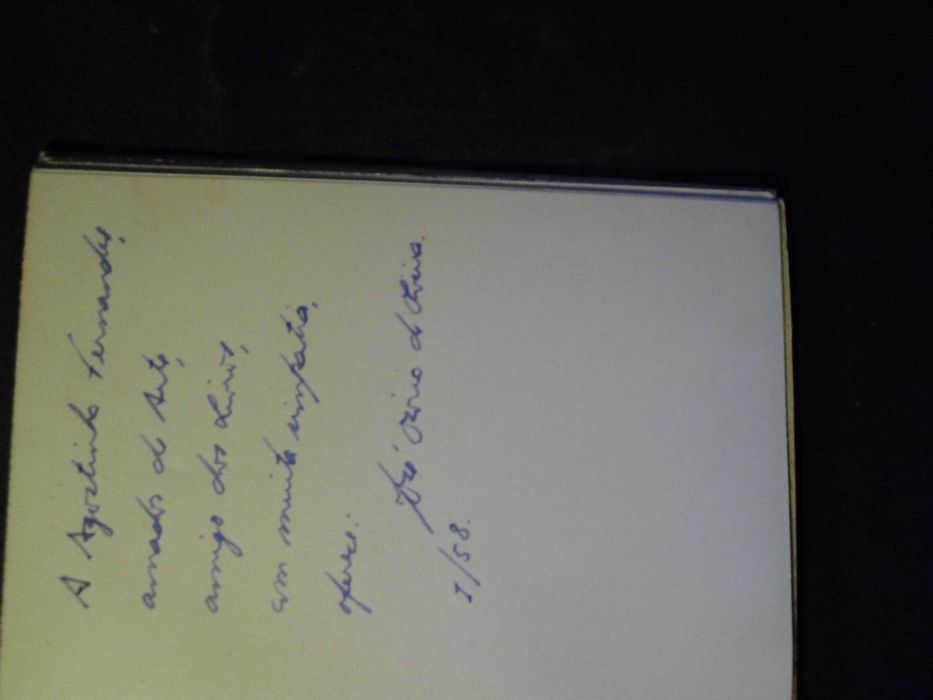 A Agostinho Fernandes,
amador de Arte,
amigo dos Livros,
com muita simpatia,
oferece:
José Osório de Oliveira.
I/58.